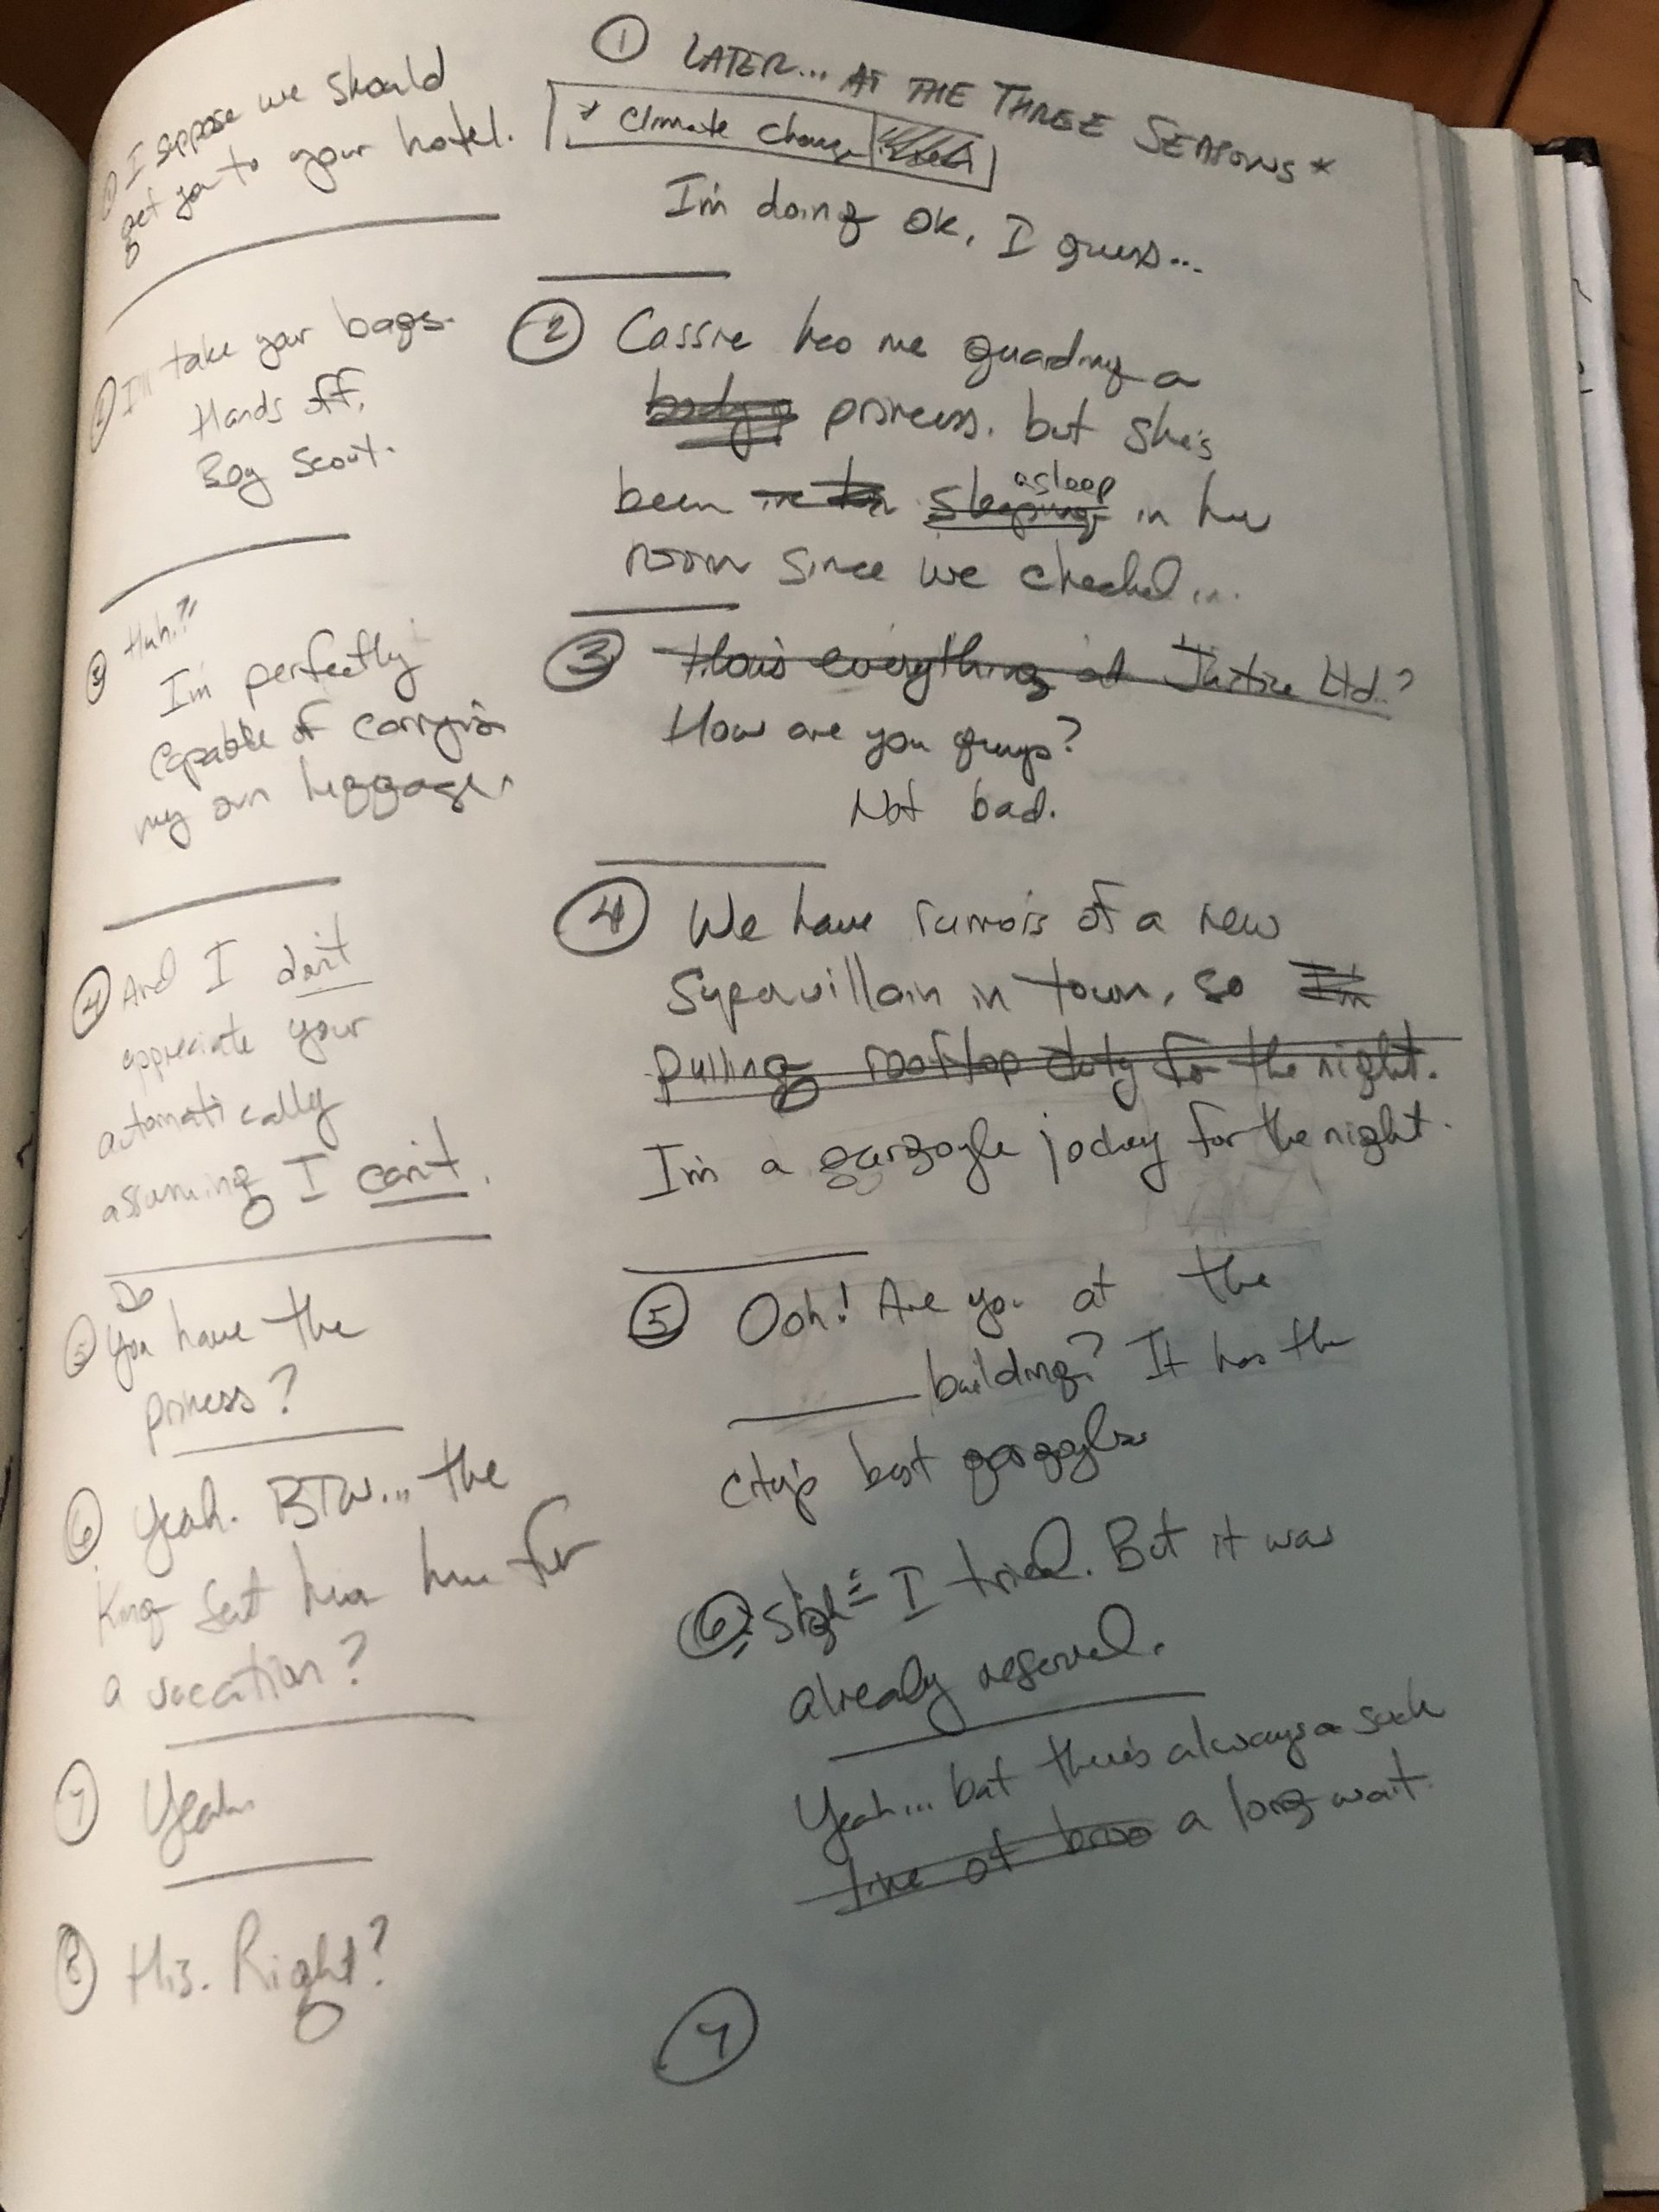 ① I sppose we should
get you to your hotel.
② I'll take your bags.
Hands off,
Boy Scout.
③ Huh?!
I'm perfectly
capable of carrying
my own luggage.
④ And I don't
appreciate your
automatically
assuming I can't.
Do
⑤ you have the
princess?
⑥ Yeah. BTW... the
King sent her here for
a vacation?
⑦ Yeah.
⑧ His. Right?
① LATER... AT THE THREE SEASONS*
* Climate change
I'm doing ok, I guess...
② Cassie has me guarding a
body princess. but she's
asleep
been in her sleeping in her
room since we checked...
③ How's everything at Justice Ltd.?
How are you guys?
Not bad.
④ We have rumors of a new
Supervillain in town, so I'm
pulling rooftop duty for the night.
I'm a gargoyle jockey for the night.
⑤ Ooh! Are you at the
_____ building? It has the
city's best gargoyles
⑥ sigh I tried. But it was
already reserved.
Yeah... but there's always a such
line of a long wait.
⑦